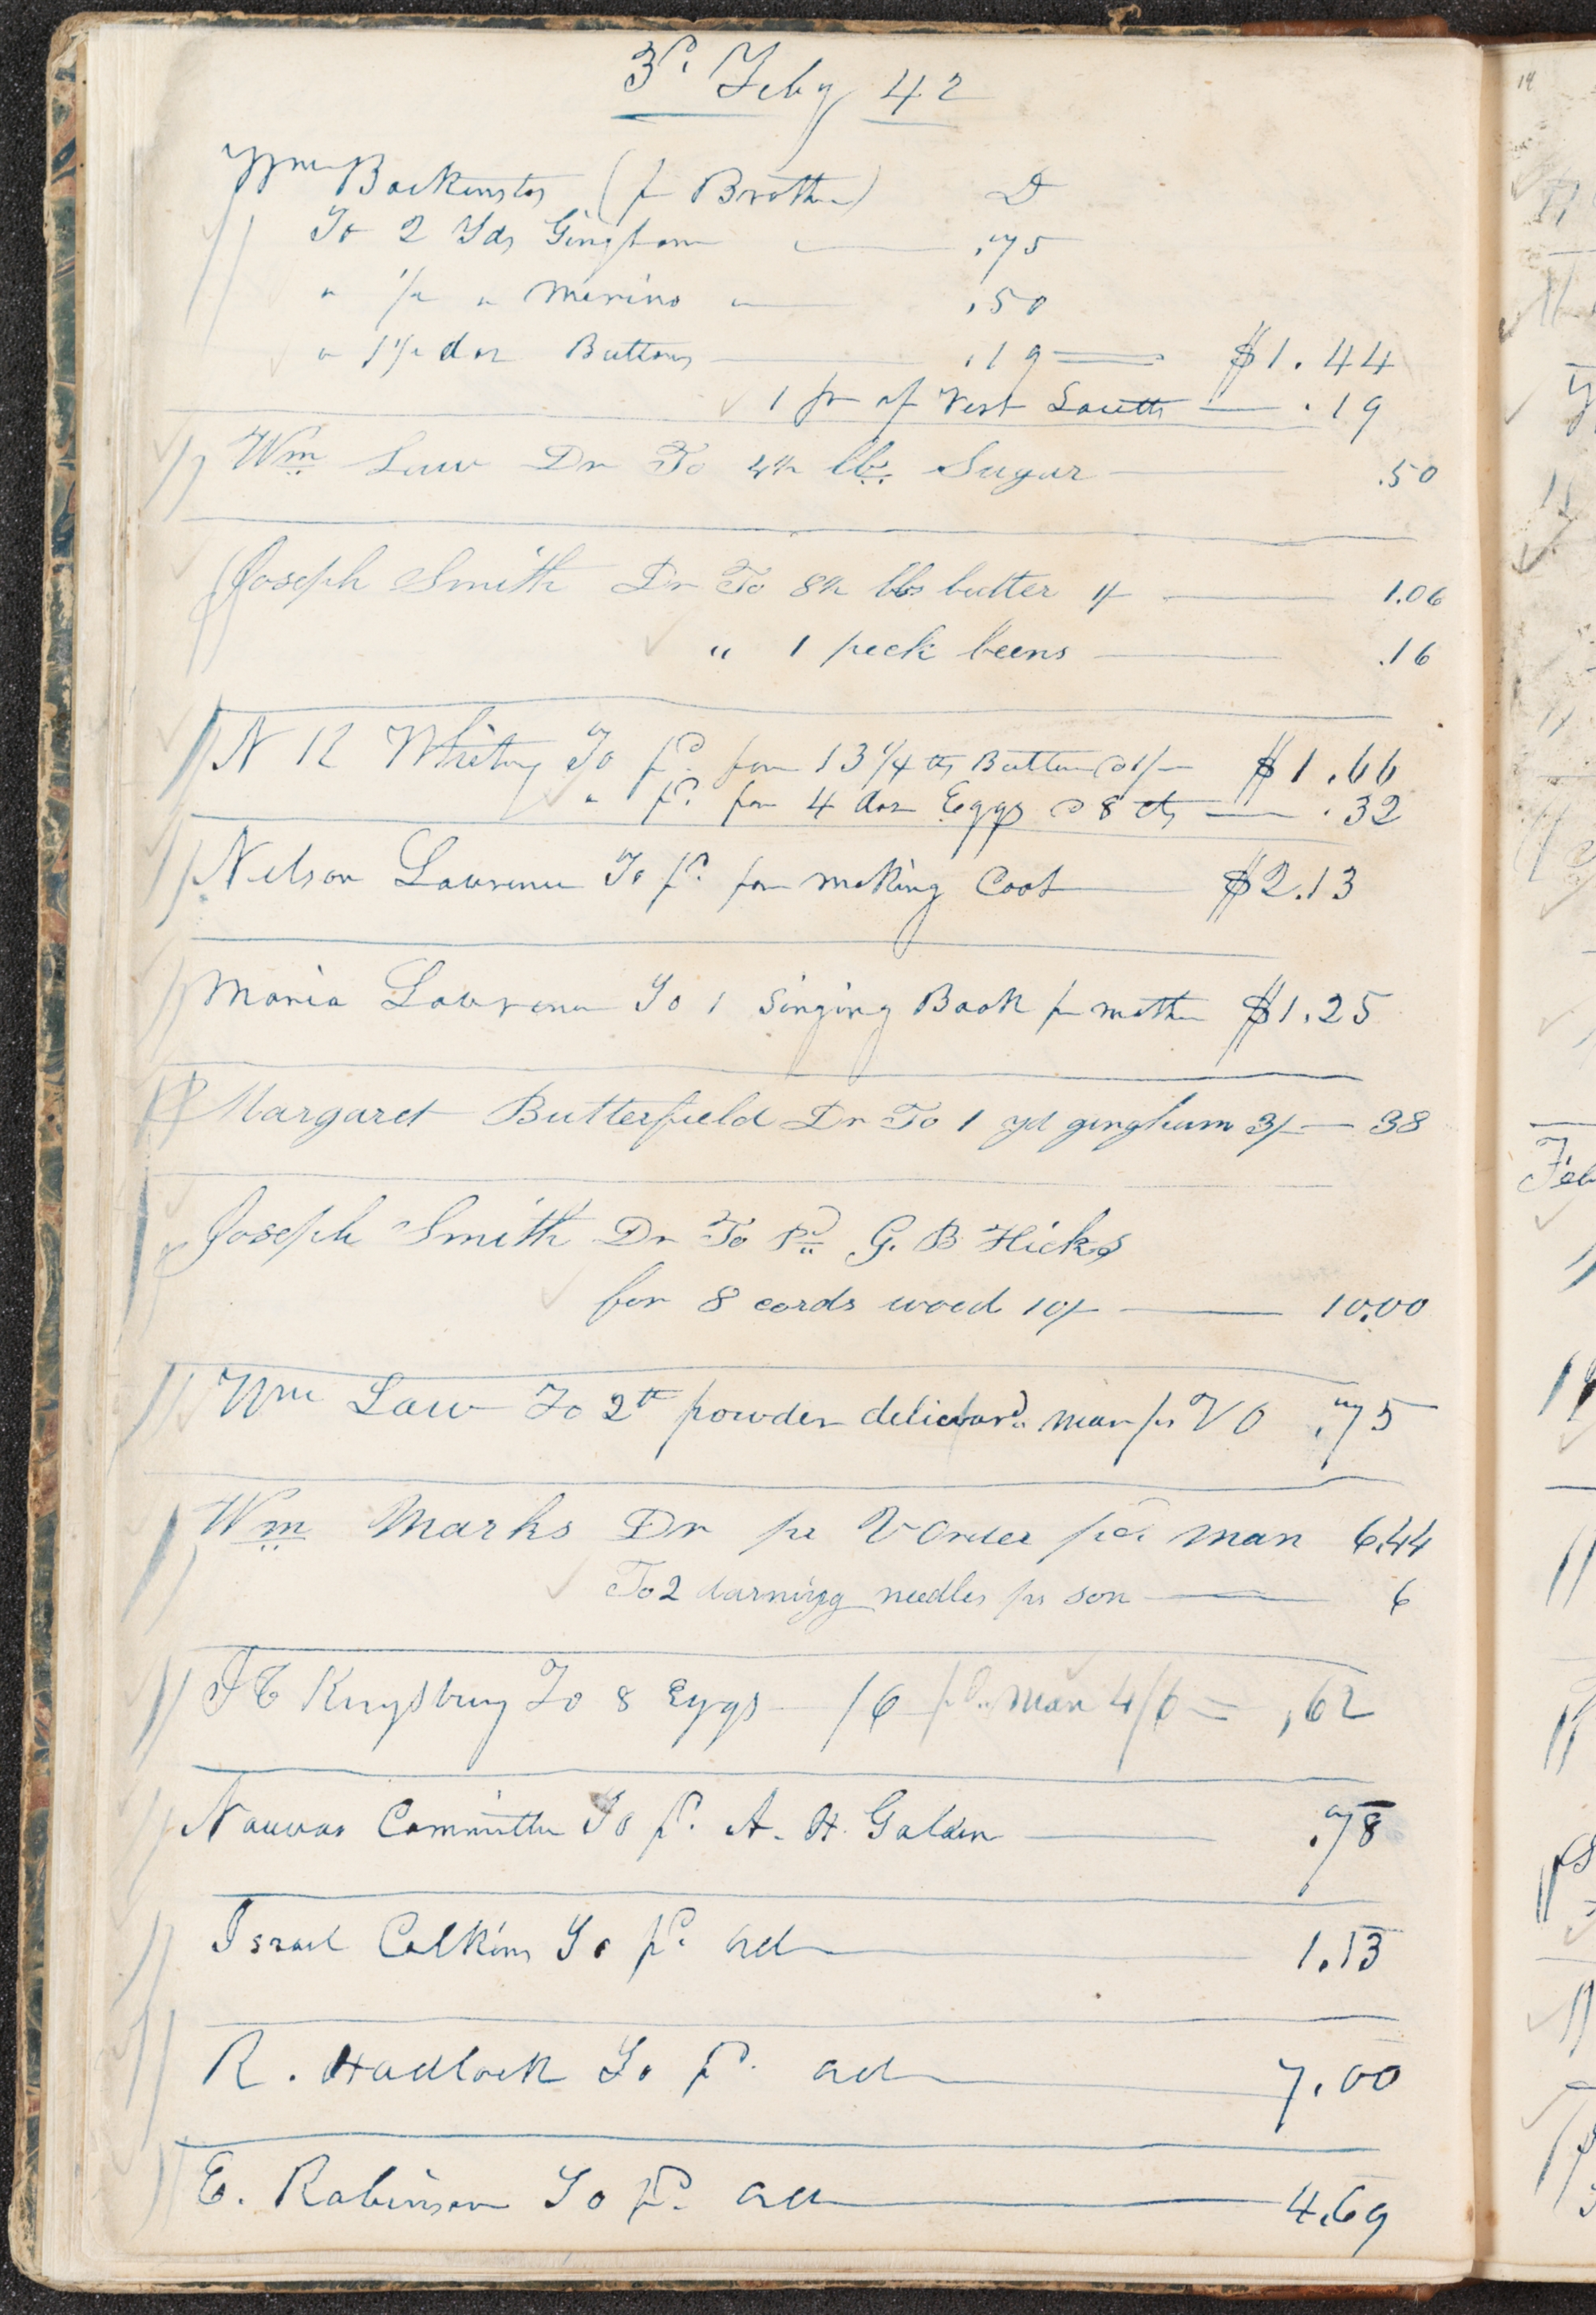 3d. Feby 42
Wm Backenstos (pr Brother) D
To 2 Yds Gingham .75
" 1/2 " Merino " .50
" 1 1/2 doz Buttons .19 $1.44
1 pr of Vest .19
Wm Law Dr To 4½ lbs. Sugar .50
Joseph Smith Dr To 8½ lbs butter 1/ 1.06
" 1 peck beens .16
N K Whitney To pd. for 13 1/4 lbs Butter @ 1/- $1.66
" pd. for 4 doz Eggs @ 8 cts .32
Nelson Lawrence To pd. for making Coat $2.13
Maria Lawrence To 1 Singing Book pr mother $1.25
Margaret Butterfield Dr To 1 yd gingham 3/- 38
Joseph Smith Dr To Pd G. B Hicks
for 8 cords wood 10/- 10.00
Wm Law To 2lb powder man pr V O .75
Wm Marks Dr pr V Order pd. man 6.44
To 2 darning needles pr son 6
J C Kingsbury To 8 Eggs /6 pd. man 4/6 = .62
Nauvoo Committee To pd. A. H. Golden .78
Israel Calkins To pd. act 1.13
R. Hadlock To pd. act 7.00
E. Robinson To pd. act 4.69
14
Feb